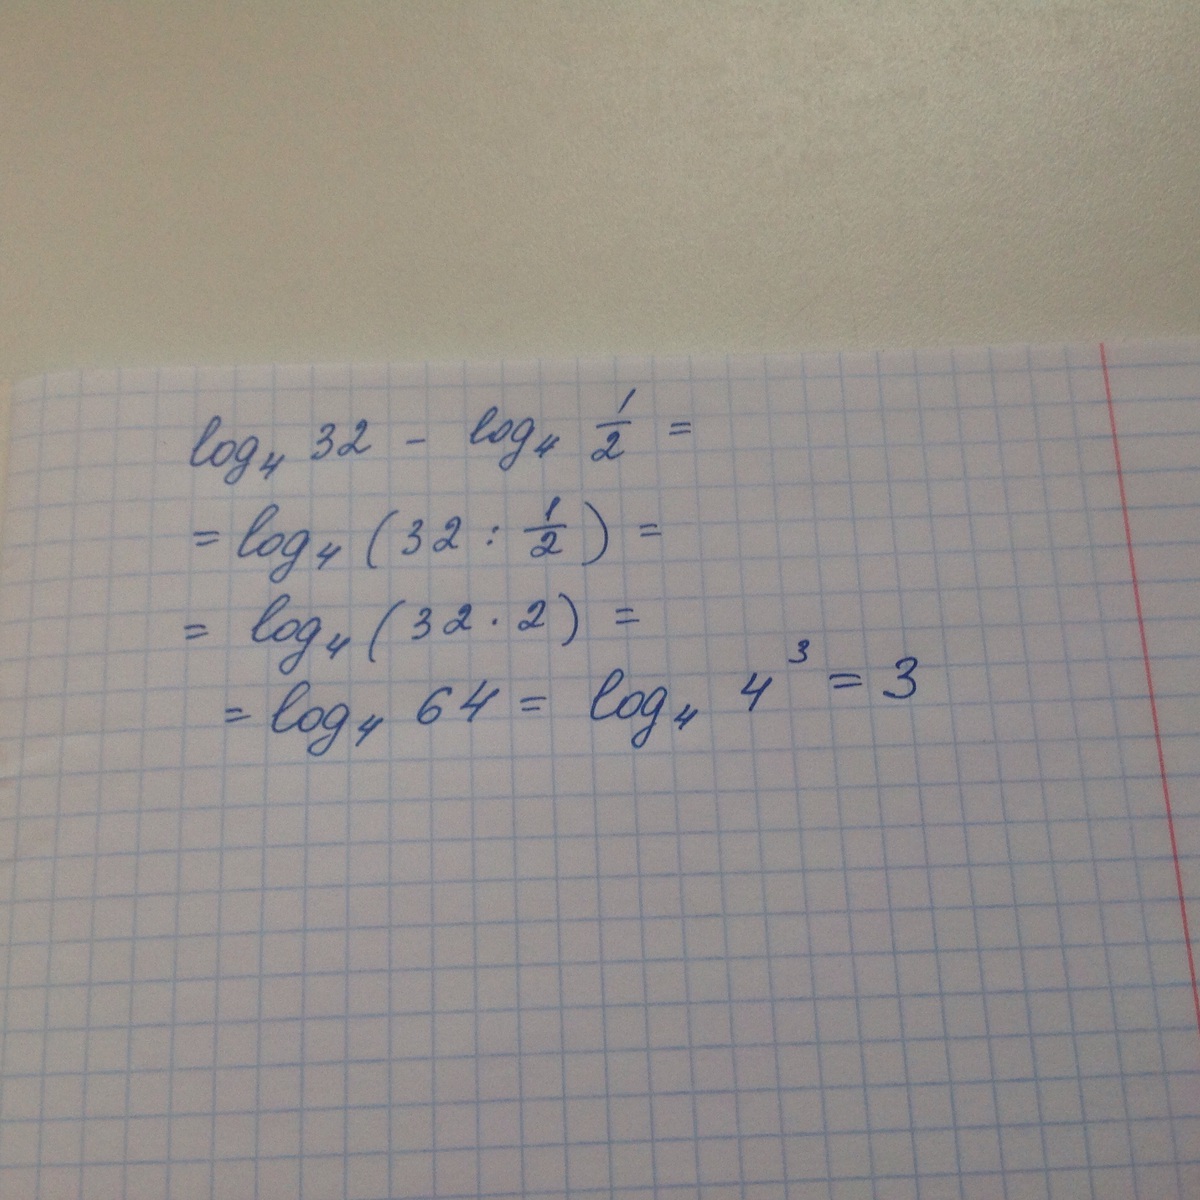 log₄ 32 - log₄ 1/2 =
= log₄ (32 : 1/2) =
= log₄ (32 · 2) =
= log₄ 64 = log₄ 4³ = 3